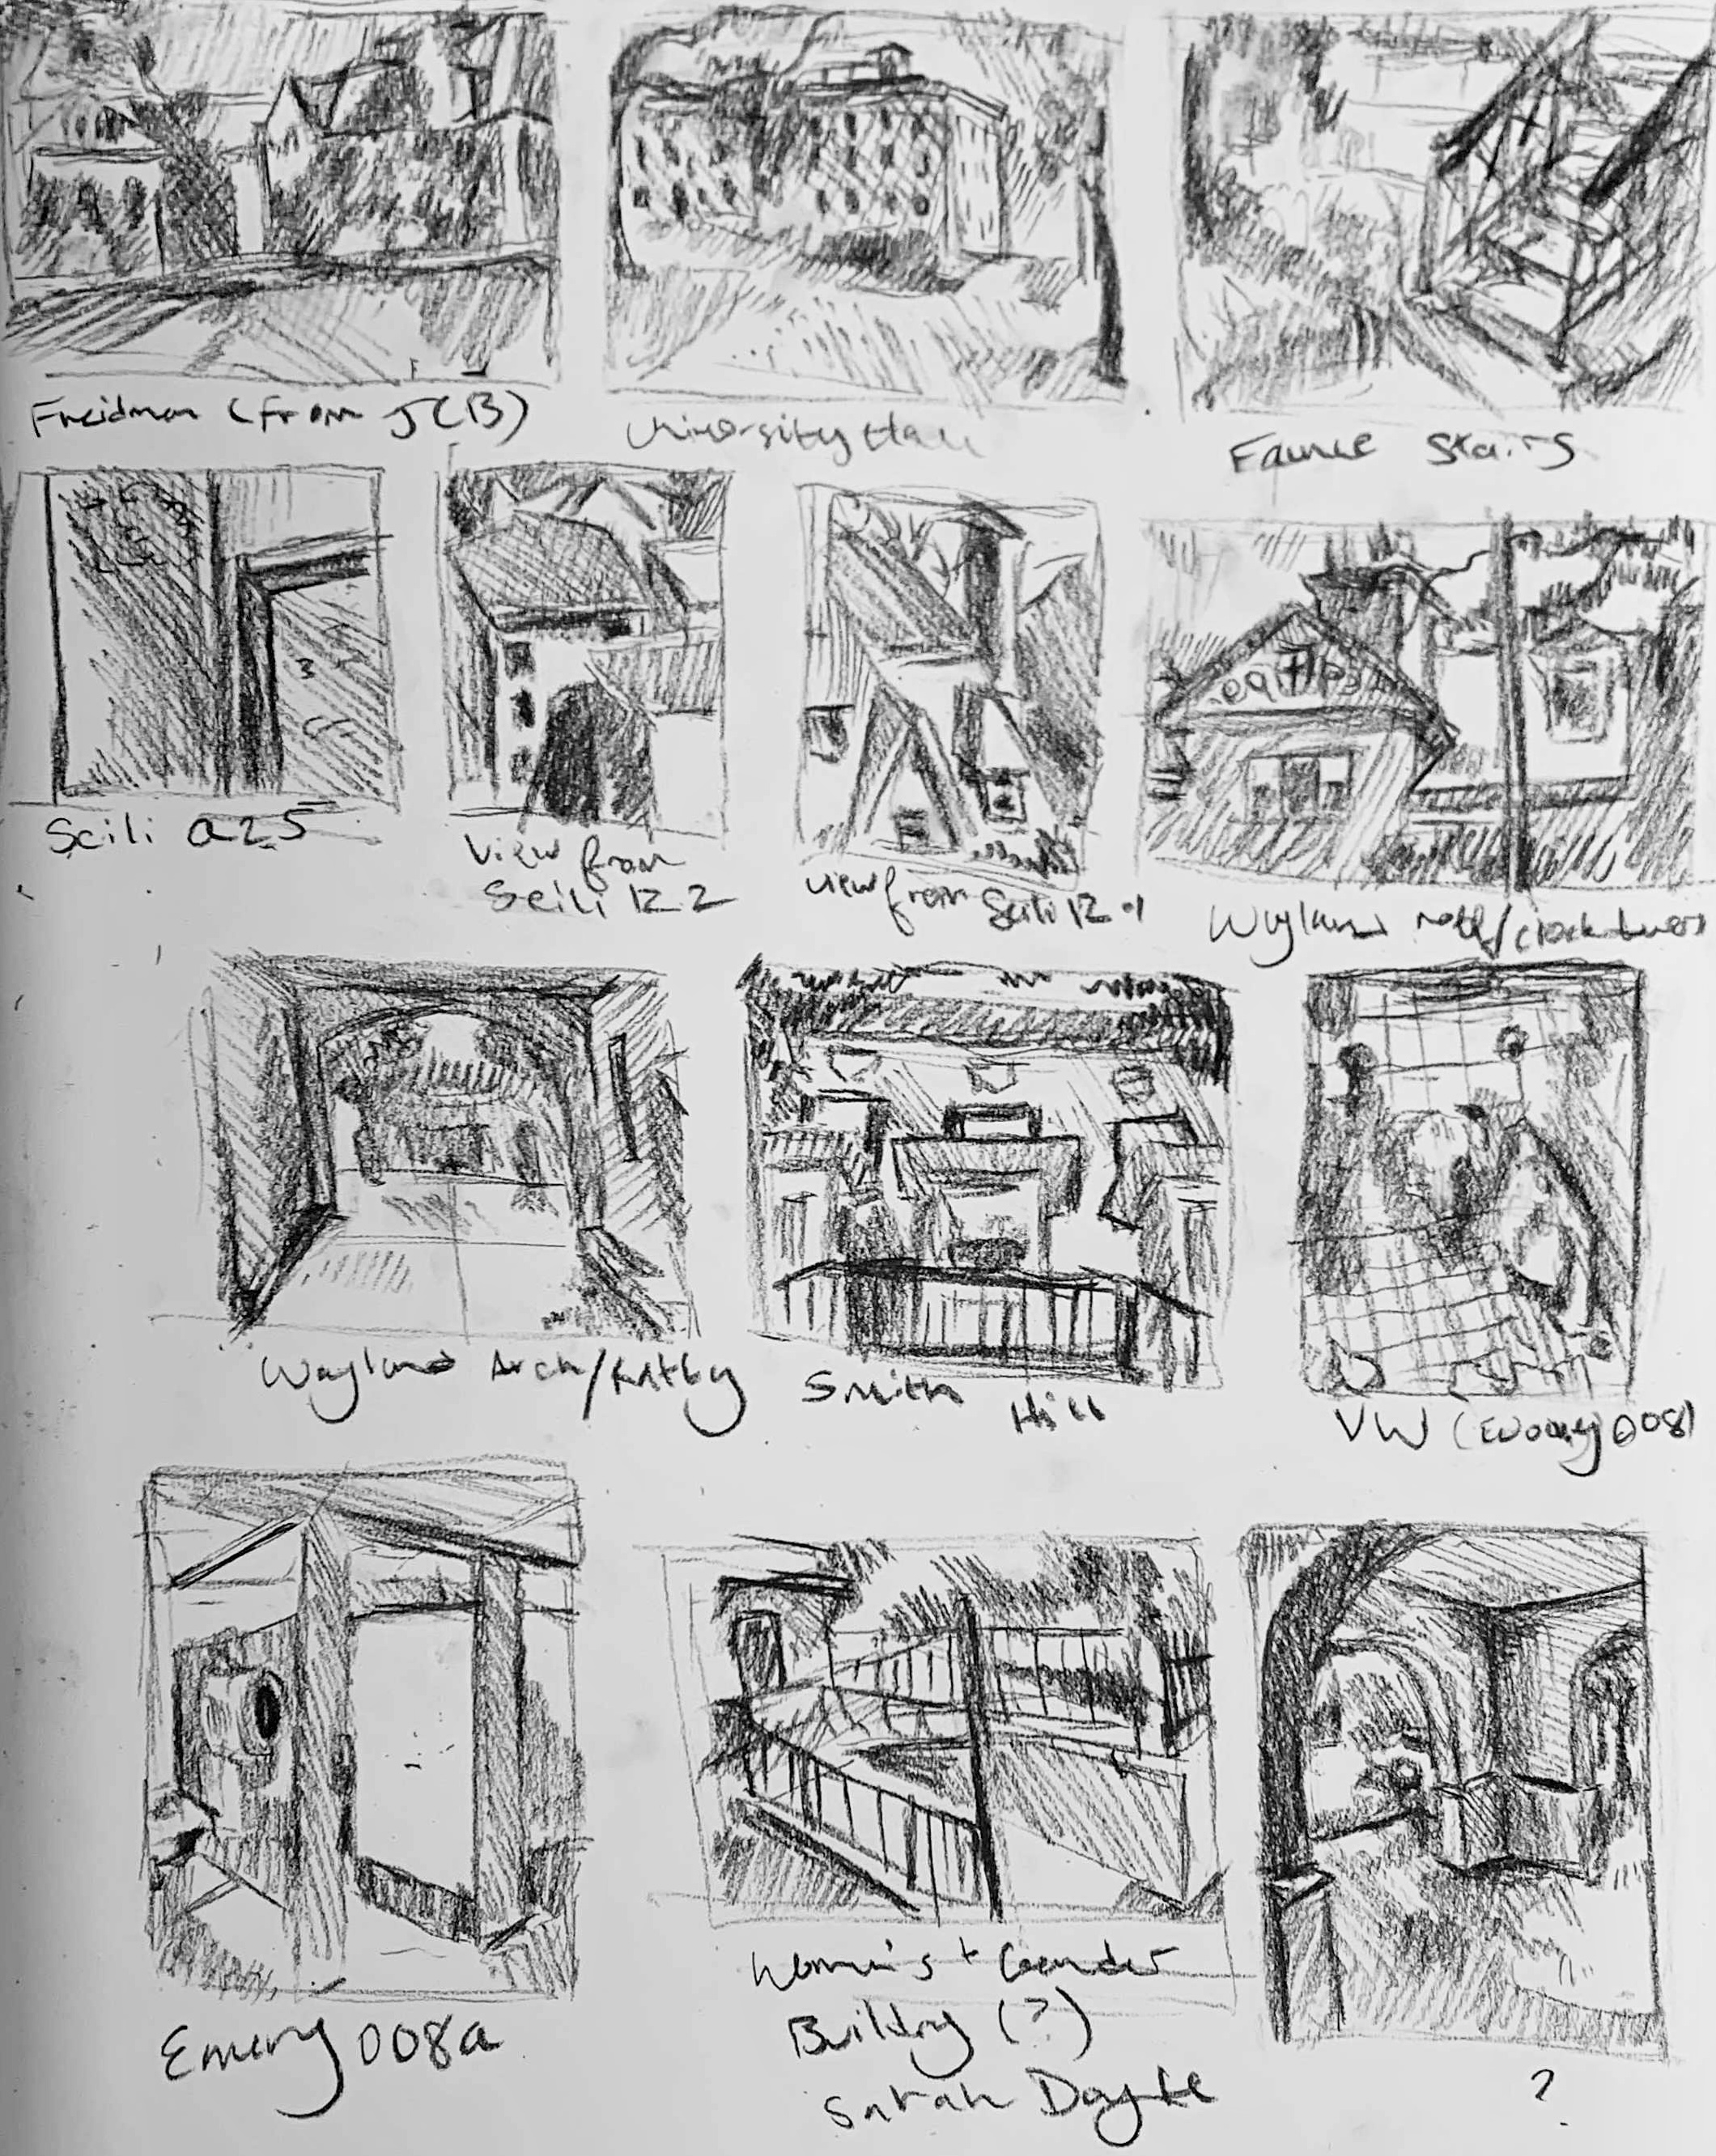 Freidman (from JCB)
University Hall
Faunce Stairs
Scili a25
View from
Scili 12.2
view from Scili 12.1
Wayland / clock tower
Wayland Arch/
Smith Hill
VW (Emery 008)
Emery 008a
Women's + Gender
Building (?)
Sarah Doyle
?